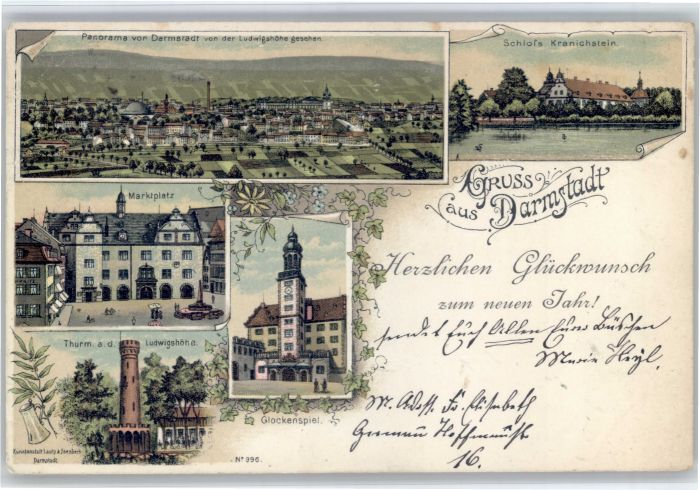 Panorama von Darmstadt von der Ludwigshöhe gesehen.
Schloſs Kranichstein.
Gruss
aus Darmstadt
Marktplatz
Herzlichen Glückwunsch
zum neuen Jahr!
sendet Euch Allen Euer
Marie
Thurm. a. d. Ludwigshöhe.
Glockenspiel.
Elisabeth
16.
Kunstanstalt Lautz & Isenbeck
Darmstadt.
No 996.